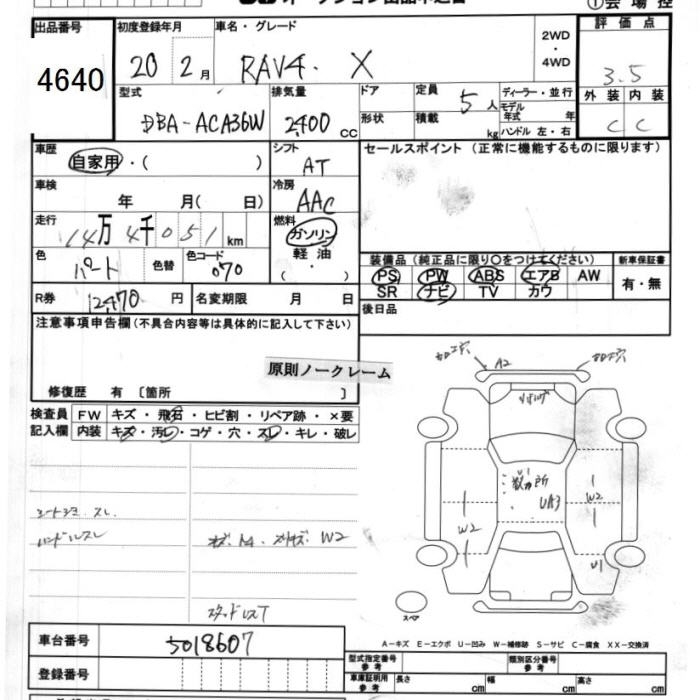 ①会場控
出品番号
4640
初度登録年月
20 2月
車名・グレード
RAV4. X
2WD
・
4WD
評価点
3.5
外装 内装
C C
型式
DBA-ACA36W
排気量
2400 cc
ドア
形状
定員
5人
積載
kg
ディーラー・並行
モデル年式 年
ハンドル 左・右
車歴
自家用・( )
シフト
AT
セールスポイント(正常に機能するものに限ります)
車検
年 月( 日)
冷房
AAC
走行
14万4千051km
燃料
ガソリン
軽油
( ・ )
色
パート
色替
色コード
070
装備品(純正品に限り○をつけてください)
PS PW ABS エアB AW
SR ナビ TV カワ
新車保証書
有・無
R券
12,470円
名変期限 月 日
後日品
注意事項申告欄(不具合内容等は具体的に記入して下さい)
原則ノークレーム
修復歴 有〔箇所 〕
検査員記入欄
FW キズ・飛石・ヒビ割・リペア跡・×要
内装 キズ・汚レ・コゲ・穴・スレ・キレ・破レ
A2
数カ所
U1
UA3
W2
W2
U1
ハンドルスレ
W2
スタッドレスT
スペア
車台番号
5018607
登録番号
A-キズ E-エクボ U-凹み W-補修跡 S-サビ C-腐食 XX-交換済
型式指定番号
参考
類別区分番号
参考
車庫証明用
参考
長さ cm
幅 cm
高さ cm